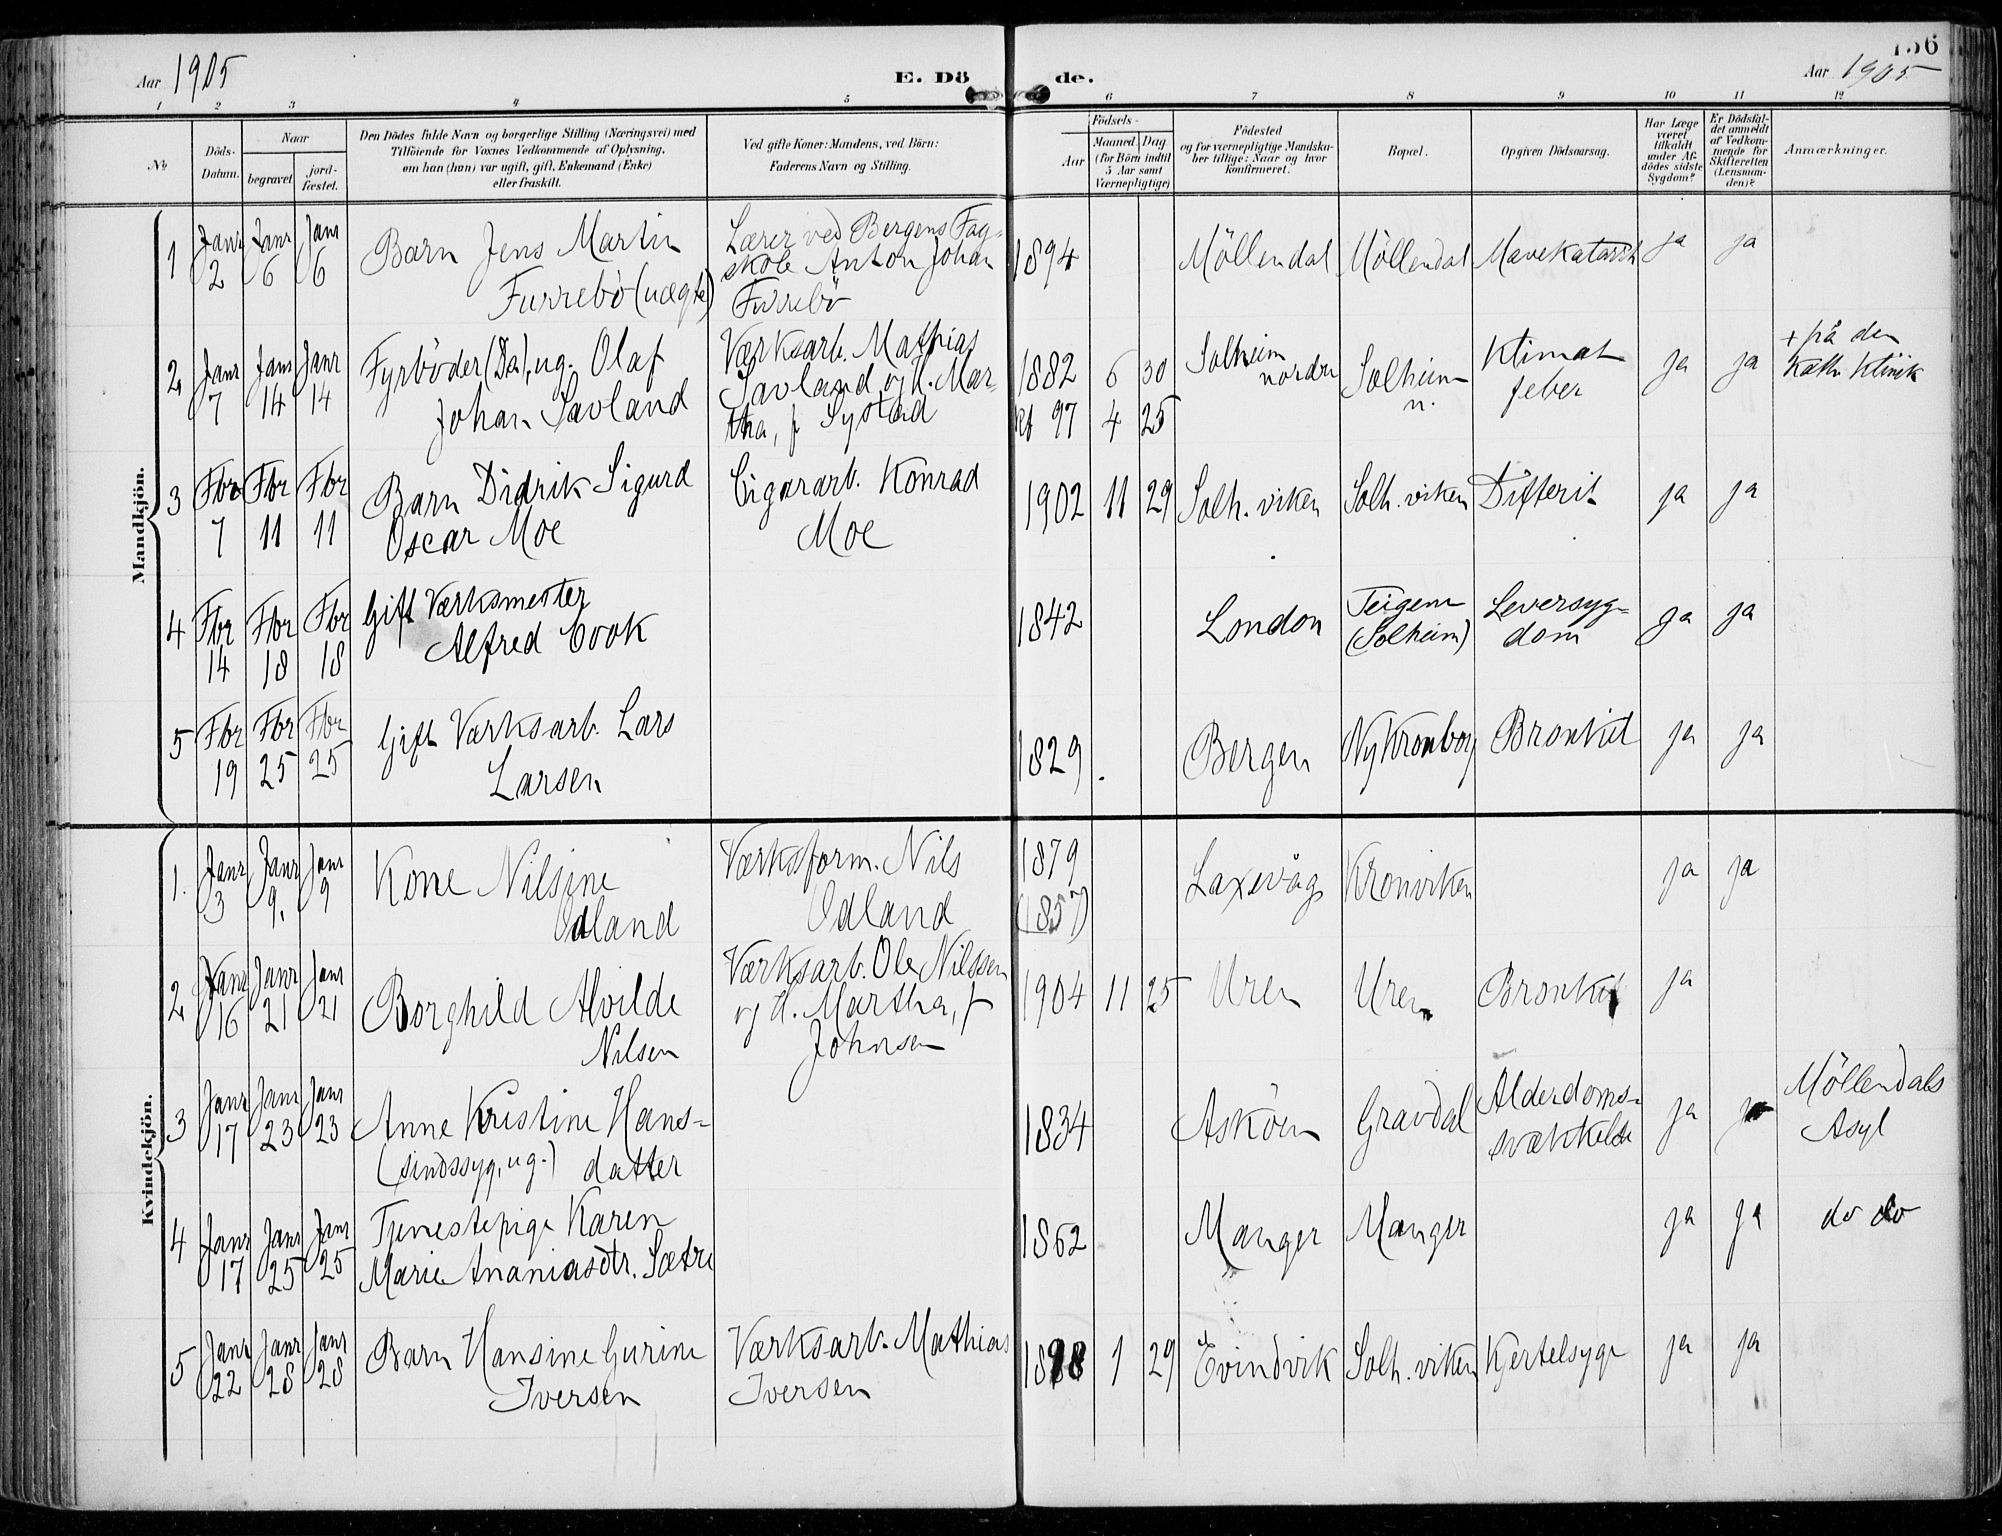 Aar 1905
E. Dö de.
156
Aar 1905
1 2 3 4 5 6 7 8 9 10 11 12
No
Döds-
Datum.
Naar
begravet.
jord-
fæstet.
Den Dödes fulde Navn og borgerlige Stilling (Næringsvei) med
Tilföiende for Voxnes Vedkommende af Oplysning,
om han (hun) var ugift, gift, Enkemand (Enke)
eller fraskilt.
Ved gifte Koner: Mandens, ved Börn:
Faderens Navn og Stilling.
Födsels-
Aar
Maaned Dag
(for Börn indtil
5 Aar samt
Værnepligtige)
Födested
og for værnepligtige Mandska-
ber tillige: Naar og hvor
konfirmeret.
Bopæl.
Opgiven Dödsaarsag.
Har Læge
været
tilkaldt
under Af-
dödes sidste
Sygdom?
Er Dödsfal-
det anmeldt
af Vedkom-
mende for
Skifteretten
(Lensman-
den)?
Anmærkninger.
Mandkjön.
1 Janr 2 Janr 6 Janr 6 Barn Jens Martin
Furrebö (uægte)
Lærer ved Bergens Fag-
skole Anton Johan
Furrebö
1894 Möllendal Möllendal Mavekatarrh ja ja
2 Janr 7 Janr 14 Janr 14 Fyrböder (Ds), ug. Olaf
Johan Savland
Værksarb. Mathias
Savland og H. Mar-
tha, f Systad
1882 6 30 Solheim
nordre
Solheim
n.
Klimat
feber
ja ja + på den
Kath. Klinik
97 4 25
3 Fbr 7 Fbr 11 Fbr 11 Barn Didrik Sigurd
Oscar Moe
Cigararb. Konrad
Moe
1902 11 29 Solh. viken Solh. viken Difterit ja ja
4 Fbr 14 Fbr 18 Fbr 18 Gift Værksmester
Alfred Cook
1842 London Teigen
(Solheim)
Leversyg-
dom
ja ja
5 Fbr 19 Fbr 25 Fbr 25 Gift Værksarb. Lars
Larsen
1829 Bergen Ny Kronborg Bronkit ja ja
Kvindekjön.
1. Janr 3 Janr 9. Janr 9 Kone Nilsine
Odland
Værksform. Nils
Odland
1879
(1857)
Laxevåg Kronviken ja ja
2 Janr 16 Janr 21 Janr 21 Borghild Alvilde
Nilsen
Værksarb. Ole Nilssen
og H. Martha, f
Johnsen
1904 11 25 Uren Uren Bronkit ja
3 Janr 17 Janr 23 Janr 23 Anne Kristine Hans-
(sindssyg, ug.) datter
1834 Asköen Gravdal Alderdoms-
svækkelse
ja ja Möllendals
Asyl
4 Janr 17 Janr 25 Janr 25 Tjenestepige Karen
Marie Ananiasdtr. Sætre
1862 Manger Manger ja ja do do
5 Janr 22 Janr 28 Janr 28 Barn Hansine Gurine
Iversen
Værksarb. Mathias
Iversen
1898 1 29 Evindvik Solh. viken Kjertelsyge ja ja